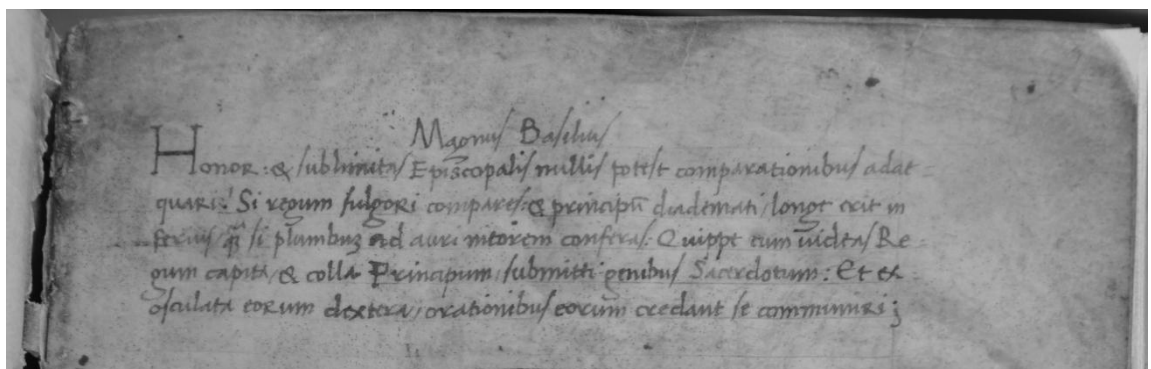 Magnus Basilius
Honor: & sublimitas Episcopalis nullis potest comparationibus adae=
quari: Si regum fulgori compares: & principū diademati, longe erit in
ferius, q̄ si plumbuʒ ad auri nitorem conferas: Quippe cum uideas Re=
gum capita, & colla Principum, submitti genibus Sacerdotum: Et ex=
osculata eorum dextera, orationibus eorum credant se communiri;